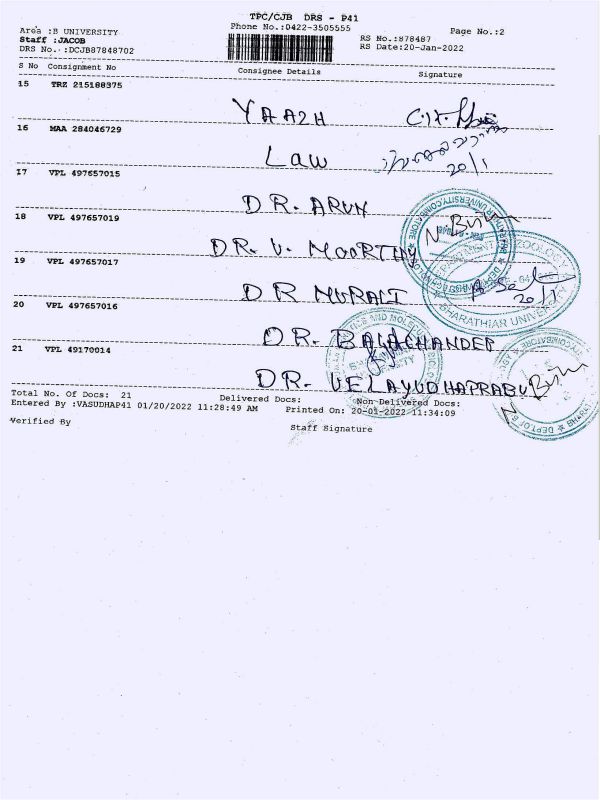 TPC/CJB DRS - P41
Phone No.:0422-3505555
Page No.:2
Area :B UNIVERSITY
Staff :JACOB
DRS No.:DCJB87848702
RS No.:878487
RS Date:20-Jan-2022
S No Consignment No Consignee Details Signature
15 TRZ 215188375
YAAZH
16 MAA 284046729
Law
20/1
17 VPL 497657015
DR. ARUN
18 VPL 497657019
DR. V. MOORTHY
19 VPL 497657017
DR MURALI
20/1
BHARATHIAR UNIVERSITY
20 VPL 497657016
DR. BALACHANDER
21 VPL 49170014
DR. VELAYUDHAPRABU
Total No. Of Docs: 21 Delivered Docs: Non-Delivered Docs:
Entered By :VASUDHAP41 01/20/2022 11:28:49 AM Printed On: 20-01-2022 11:34:09
Verified By Staff Signature